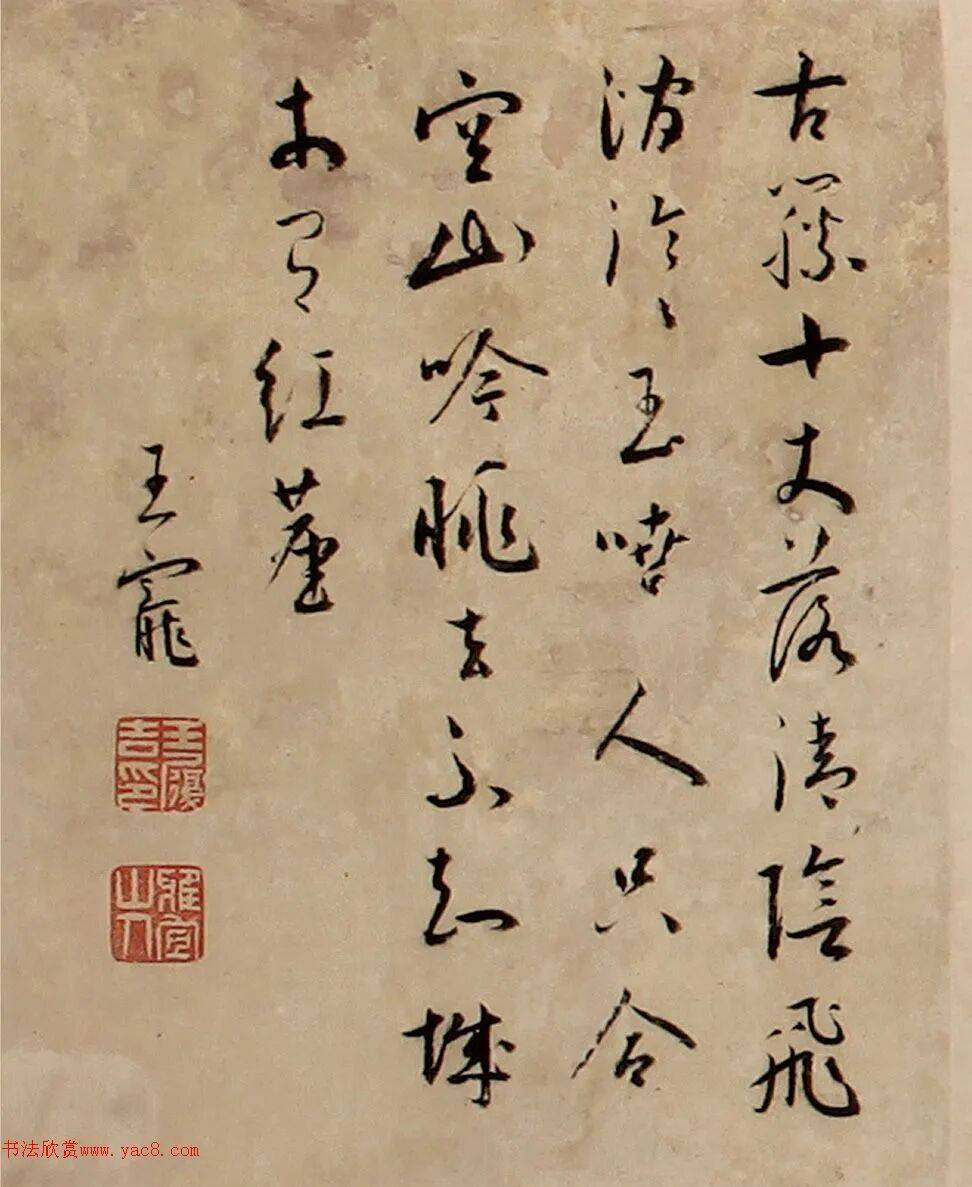 古藤十丈落清陰飛
泠〻玉人只合
空山吟眺去不知城
市有紅塵
王寵
王履吉印
雅宜山人
书法欣赏www.yac8.com